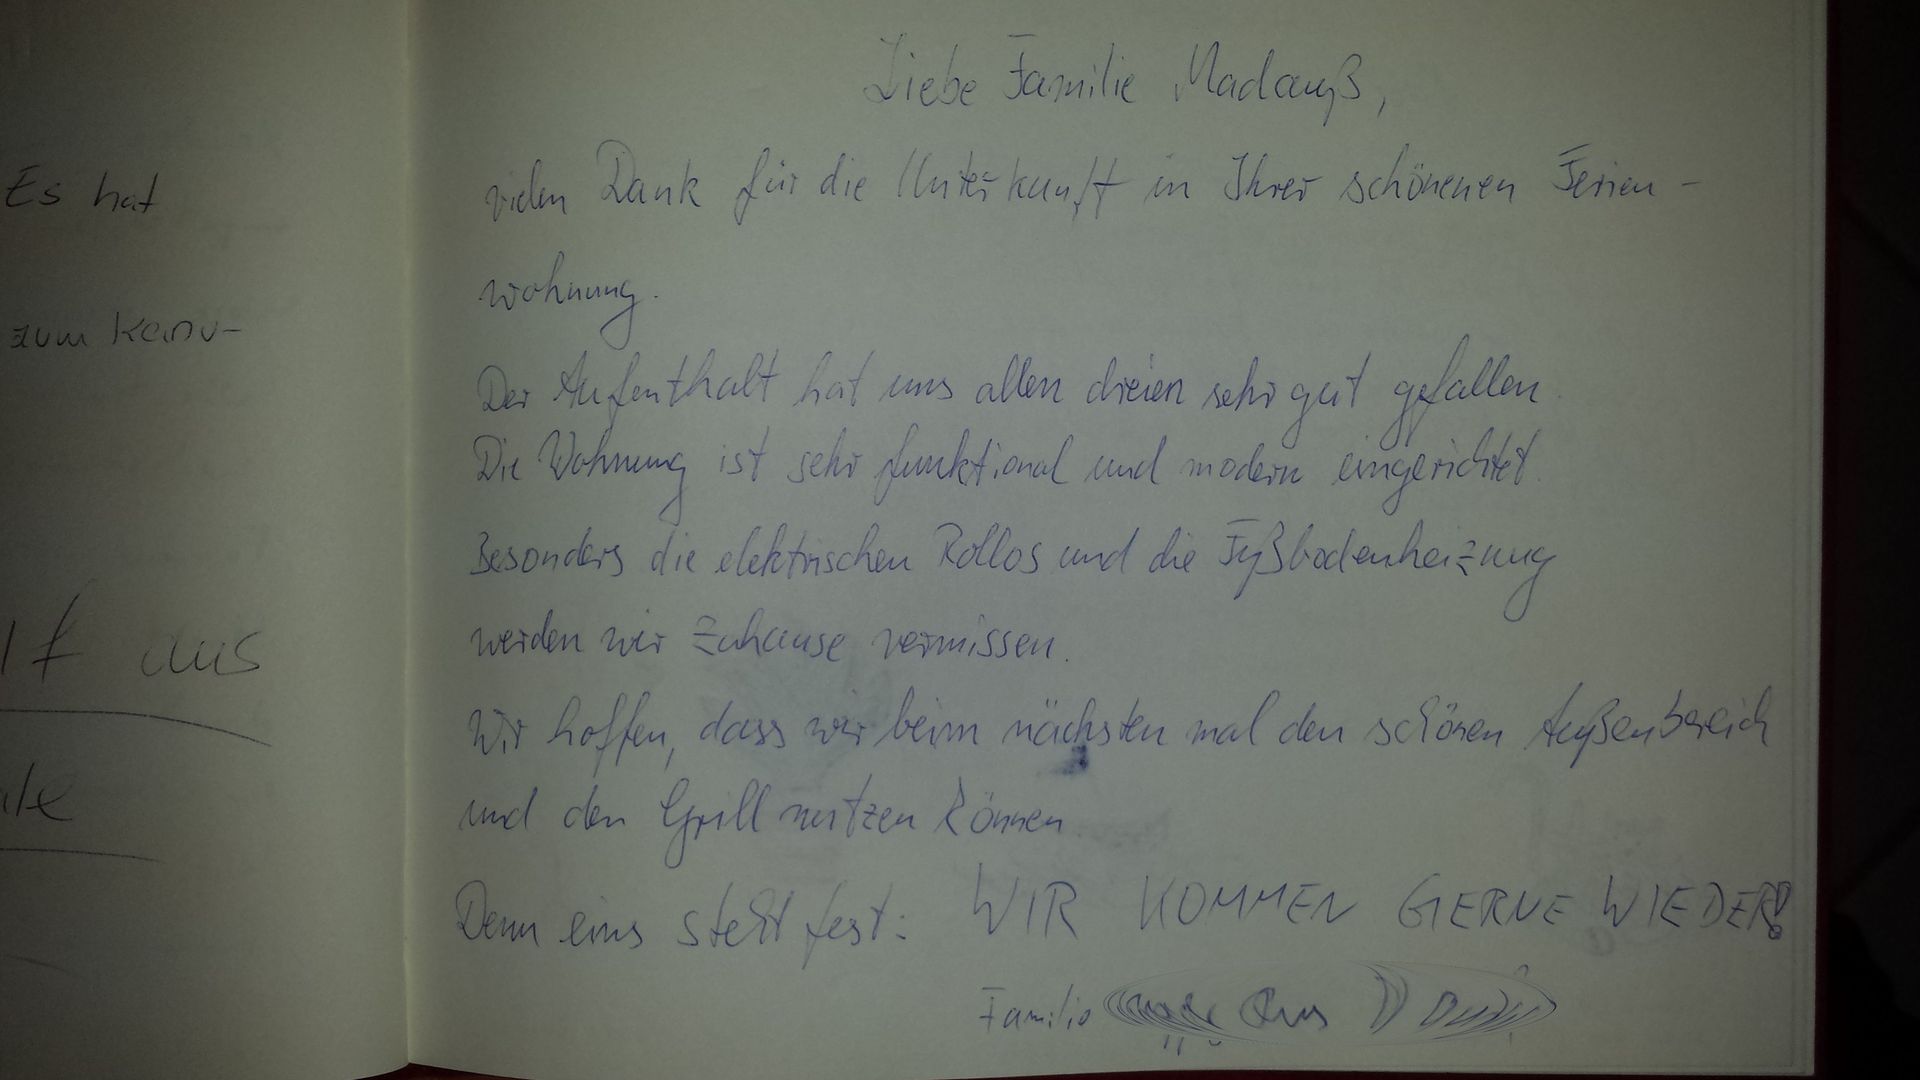 Es hat
zum Kanu-
aus
Liebe Familie Madauß,
vielen Dank für die Unterkunft in Ihrer schönenen Ferien-
wohnung.
Der Aufenthalt hat uns allen dreien sehr gut gefallen.
Die Wohnung ist sehr funktional und modern eingerichtet.
Besonders die elektrischen Rollos und die Fußbodenheizung
werden wir Zuhause vermissen.
Wir hoffen, dass wir beim nächsten mal den schönen Außenbereich
und den Grill nutzen können
Denn eins steht fest: WIR KOMMEN GERNE WIEDER!
Familie